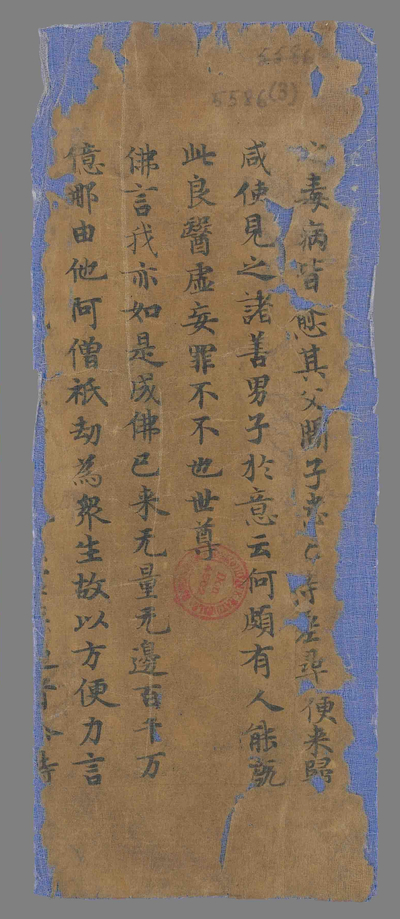 5586
5586(3)
毒病皆愈其父聞子悉已得差尋便来歸
咸使見之諸善男子於意云何頗有人能説
此良醫虛妄罪不不也世尊
佛言我亦如是成佛已来无量无邊百千万
億那由他阿僧祇劫為衆生故以方便力言